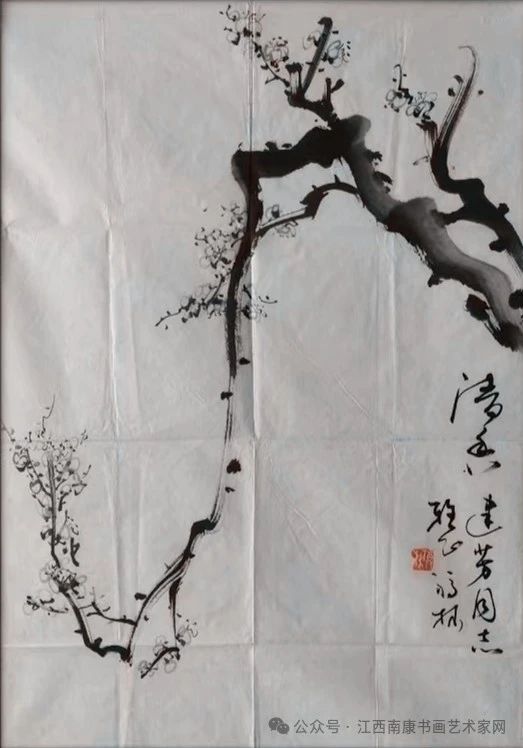 清香 建芳同志
雅正
公众号 · 江西南康书画艺术家网